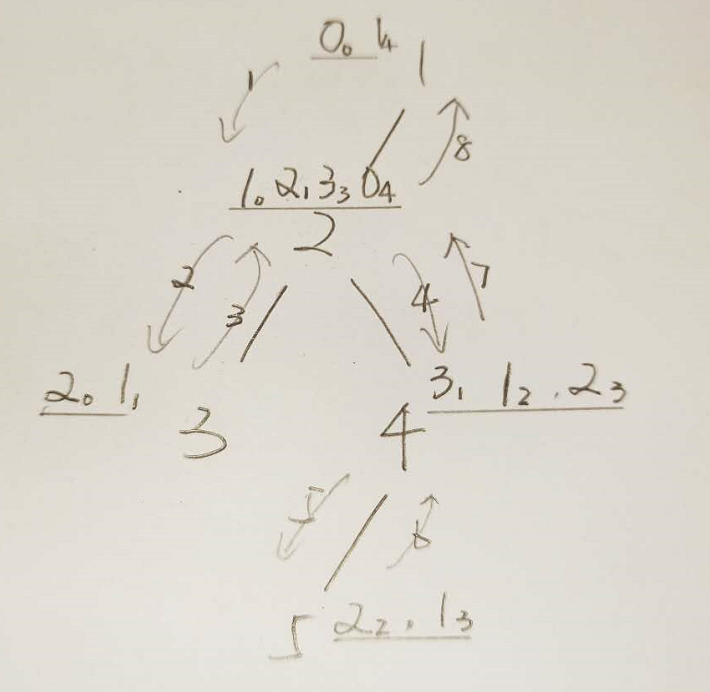 0₀ 1₄
1
1
8
1₀ 2₁ 3₃ 0₄
2
2
3
4
7
2₀ 1₁
3
4
3₁ 1₂ . 2₃
5
6
5
2₂ . 1₃